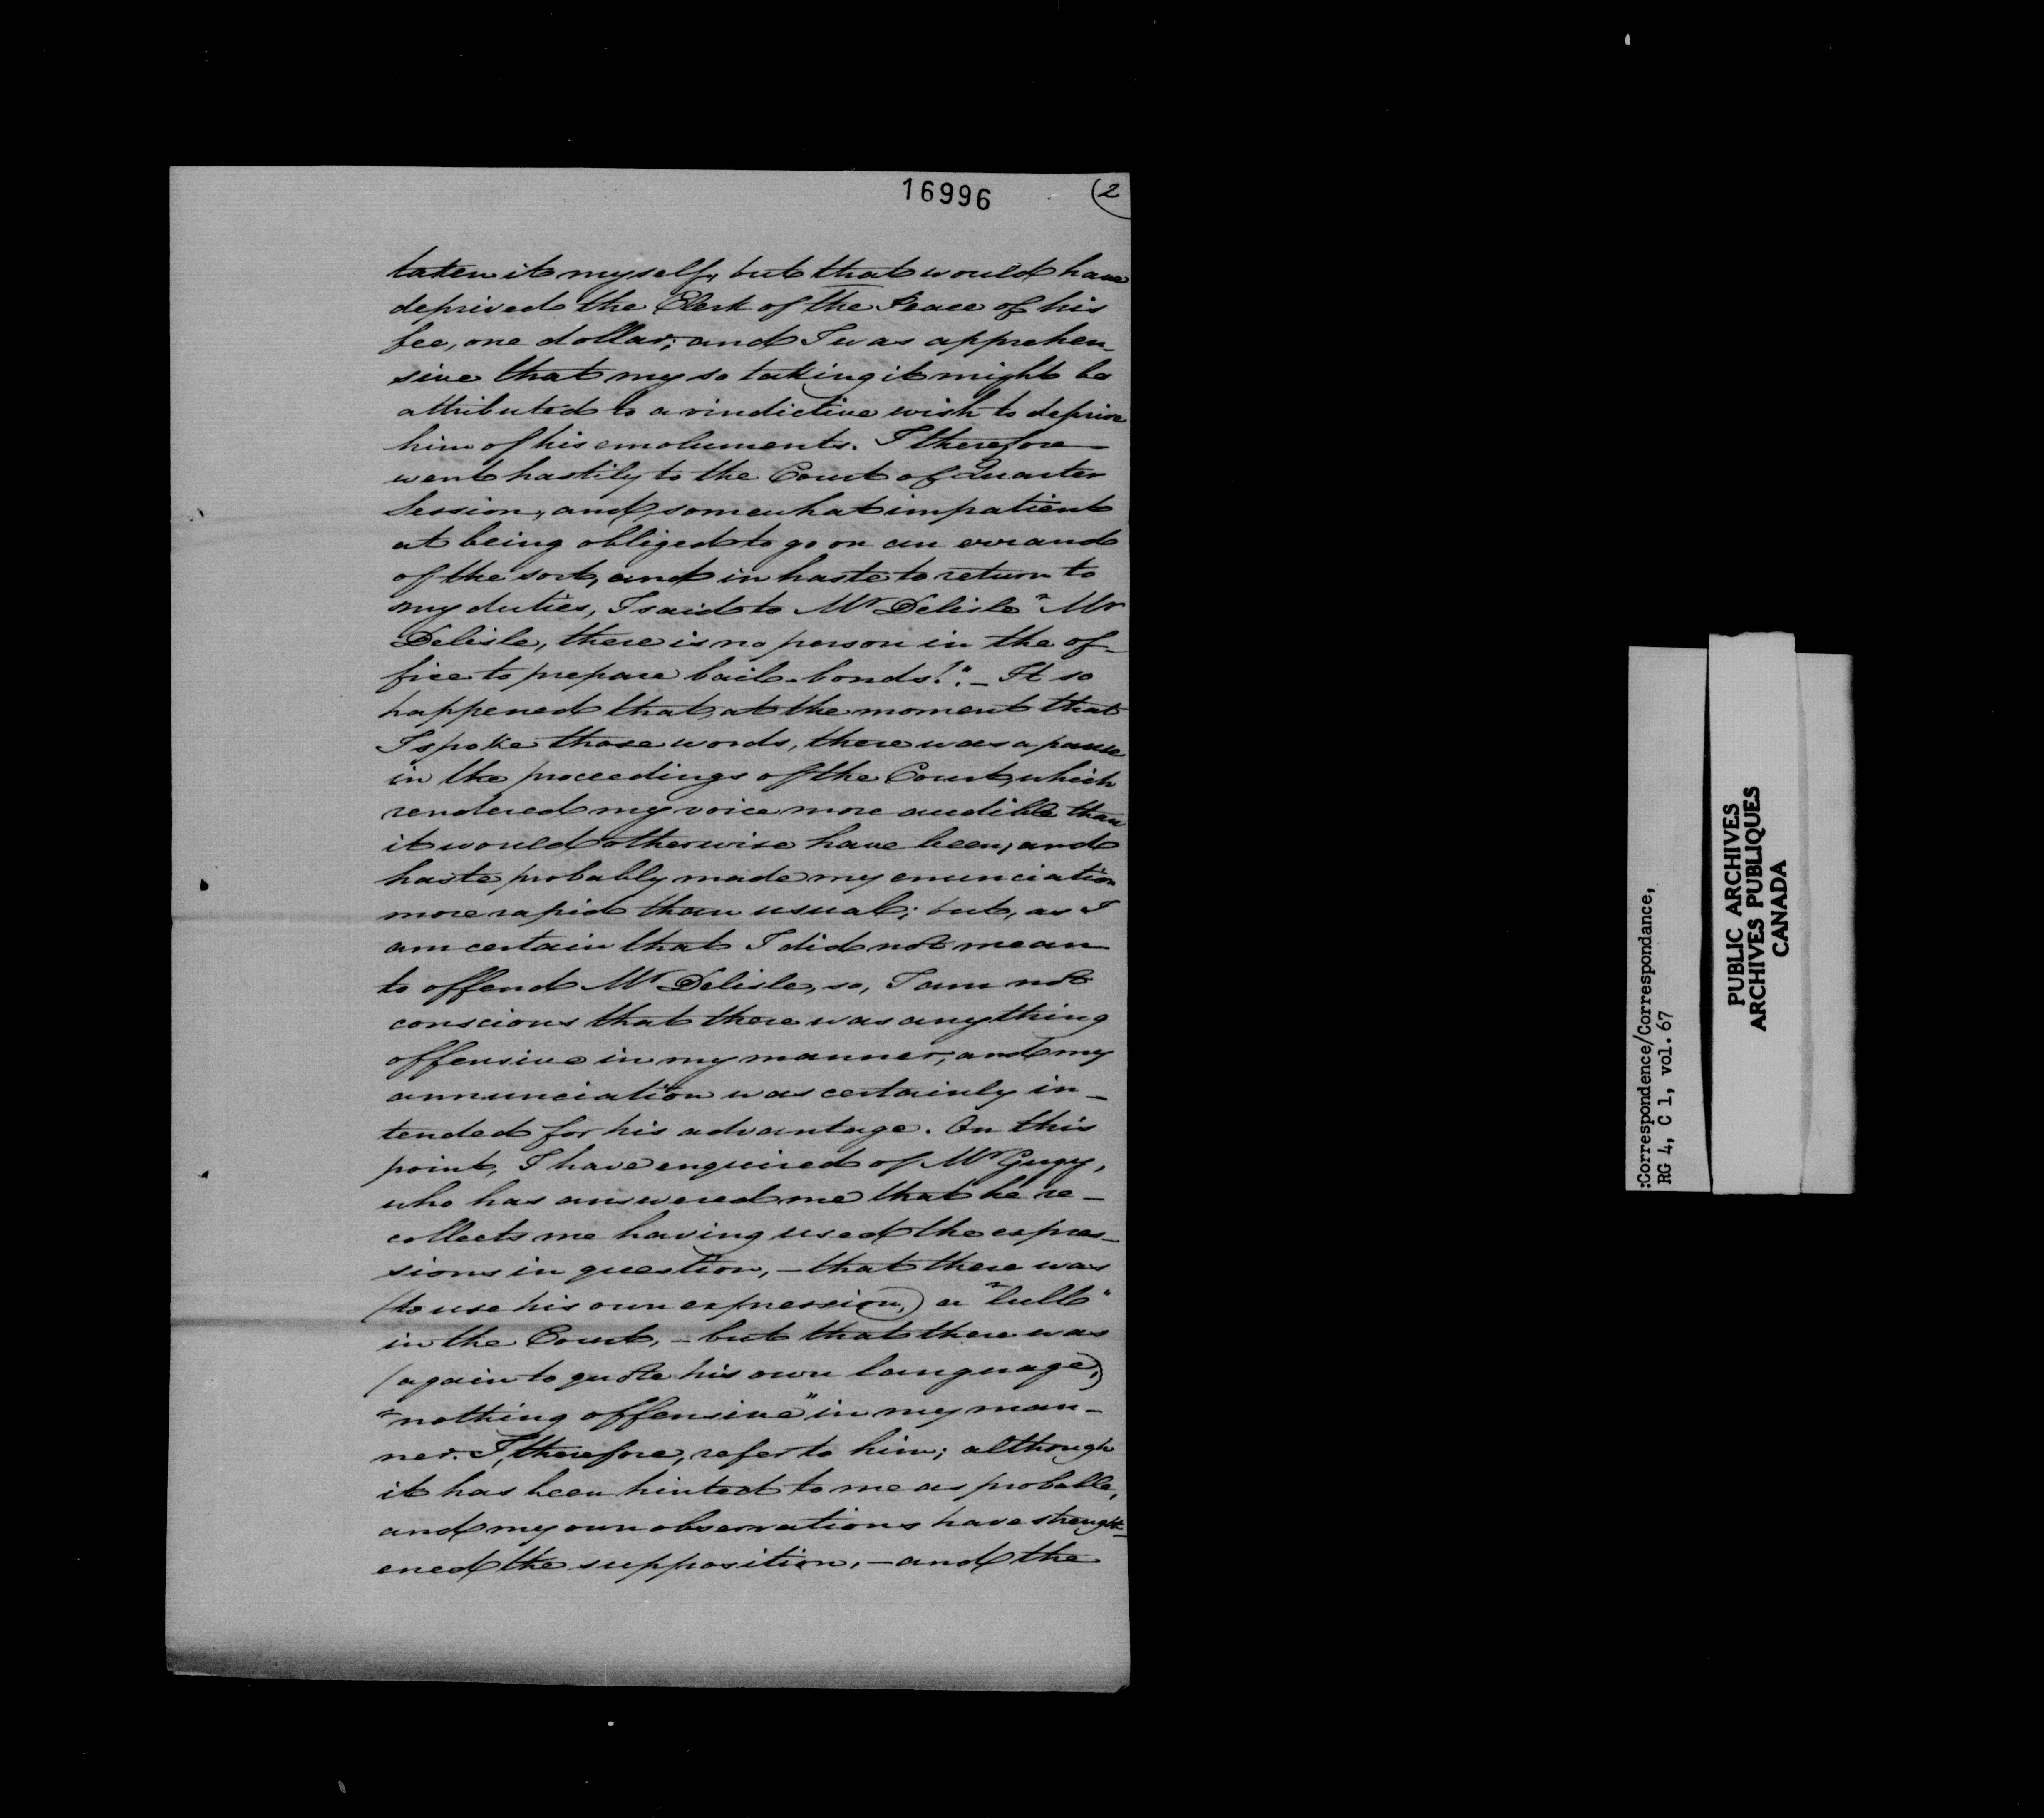 16996
(2
taken it myself, but that would have
deprived the Clerk of the Peace of his
fee, one dollar; and I was apprehen-
sive that my so taking it might be
attributed to a vindictive wish to deprive
him of his emoluments. I therefore
went hastily to the Court of Quarter
Session, and, somewhat impatient
at being obliged to go on an errand
of the sort, and in haste to return to
my duties, I said to Mr Delisle "Mr
Delisle, there is no person in the of-
fice to prepare bail-bonds!". - It so
happened that, at the moment that
I spoke those words, there was a pause
in the proceedings of the Court, which
rendered my voice more audible than
it would otherwise have been, and
haste probably made my enunciation
more rapid than usual; but, as I
am certain that I did not mean
to offend Mr Delisle, so, I am not
conscious that there was anything
offensive in my manner, and my
annunciation was certainly in-
tended for his advantage. On this
point, I have enquired of Mr Gugy,
who has answered me that he re-
collects me having used the expres-
sions in question, - that there was
(to use his own expression,) a "lull"
in the Court, - but that there was
(again to quote his own language,)
"nothing offensive" in my man-
ner. I, therefore, refer to him; although
it has been hinted to me as probable,
and my own observations have strenght-
ened the supposition, - and the
:Correspondence/Correspondance,
RG 4, C 1, vol. 67
PUBLIC ARCHIVES
ARCHIVES PUBLIQUES
CANADA